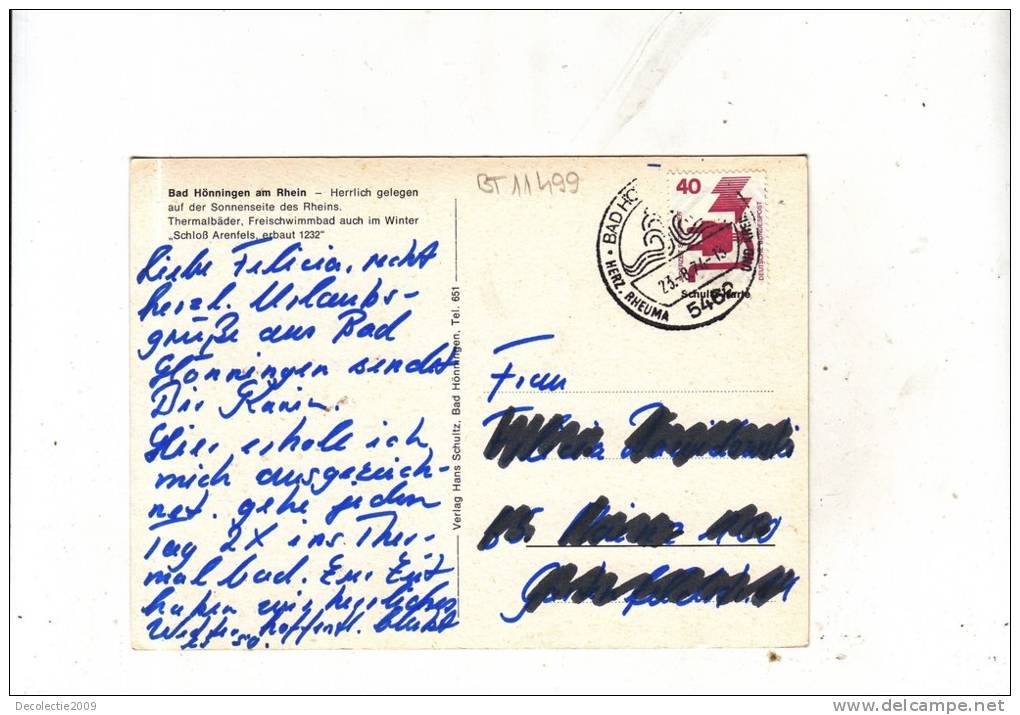 BT 11499
Bad Hönningen am Rhein – Herrlich gelegen
auf der Sonnenseite des Rheins.
Thermalbäder, Freischwimmbad auch im Winter
„Schloß Arenfels, erbaut 1232"
Liebe Felicia, recht
herzl. Urlaubs-
grüße aus Bad
Hönningen sendet
Dir Karin.
Hier erhole ich
mich ausgezeich-
net. gehe jeden
Tag 2X ins Ther-
malbad. Zur Zeit
haben wir herrliches
Wetter, hoffentl. bleibt
es so.
Verlag Hans Schultz, Bad Hönningen, Tel. 651
40
DEUTSCHE BUNDESPOST
BAD HÖ
HERZ, RHEUMA
UND
23.-8.74-13
5462
Schultz-Karte
Frau
Felicia
Decolectie2009
www.delcampe.net